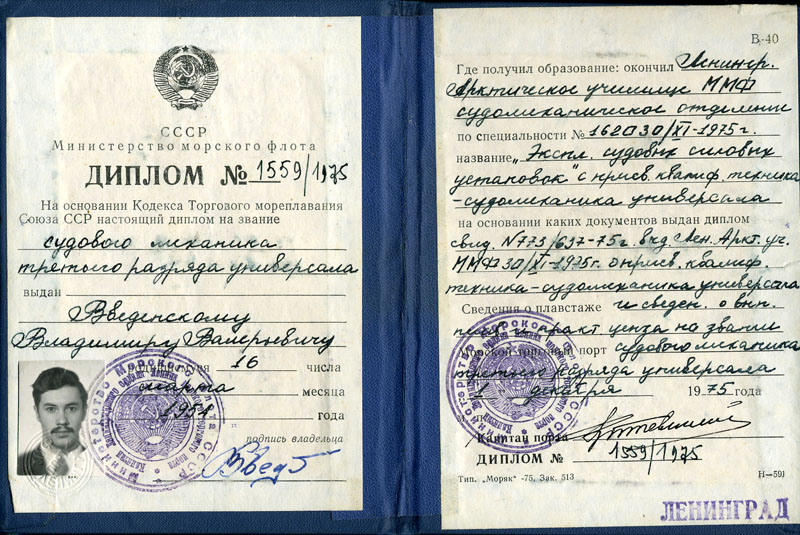 СССР
Министерство морского флота
ДИПЛОМ № 1559/1975
На основании Кодекса Торгового мореплавания
Союза ССР настоящий диплом на звание
судового механика
третьего разряда универсала
выдан
Введенскому
Владимиру Валерьевичу
16 числа
марта месяца
1954 года
подпись владельца
В-40
Где получил образование: окончил Ленингр.
Арктическое училище ММФ
судомеханическое отделение
по специальности № 1620 30/XI-1975г.
название „Экспл. судовых силовых
установок" с присв. квалиф. техника
-судомеханика универсала
на основании каких документов выдан диплом
свид. N773/637-75г. выд. Лен. Аркт. уч.
ММФ 30/XI-1975г. о присв. квалиф.
техника-судомеханика универсала
Сведения о плавстаже и сведен. о вып.
ценза на звании
Морской торговый порт судового механика
третьего разряда универсала
1 декабря 1975 года
Капитан порта
ДИПЛОМ № 1559/1975
Тип. „Моряк" -75, Зак. 513 Н-591
ЛЕНИНГРАД